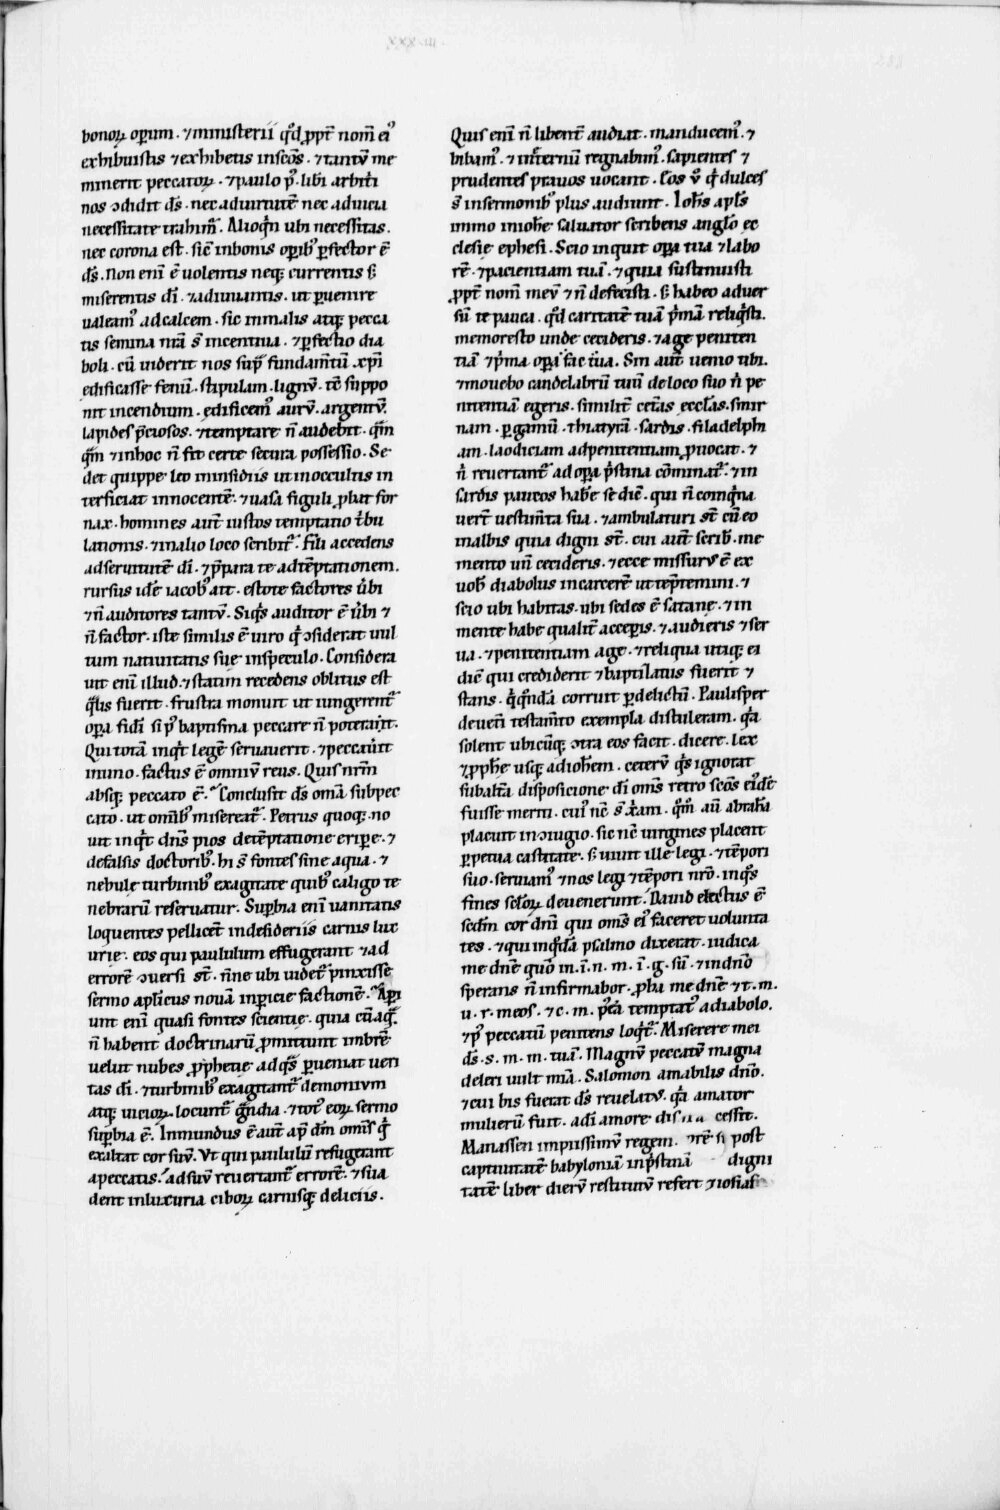 xxx.iii.
bonoꝝ opum . ⁊ministerii qͥd ꝓpt̄ nom̄ eiꝰ
exhibuistis ⁊exhibetis insc̄os . ⁊tantū me
minerit peccatoꝝ . ⁊paulo pꝰ. libi arbit̓i
nos ↄdidit ds̄ . nec aduirtutē nec aduicia
necessitate trahimꝰ. Alioqͥn ubi necessitas .
nec corona est . sic̄ inbonis opibꝰ ꝑfector ē
ds̄ . Non eni ē uolentis neqꝫ currentis sꝫ
miserentis di . ⁊adiuuantis . ut ꝑuenire
ualeamꝰ adcalcem . sic inmalis atqꝫ pecca
tis semina nr̄a s̄t incentiua . ⁊ꝑfectio dia
boli . cū uiderit nos supͣ fundam̄tū .xp̄i
edificasse fenū . stipulam . lignū . tē suppo
nit incendium . edificemꝰ aurū . argentū .
lapides p̄ciosos . ⁊temptare n̄ audebit . qm̄
qm̄ ⁊inhoc n̄ fit certe secura possessio . Se
det quippe leo ininsidiis ut inoccultis in
terficiat innocentē . ⁊uasa figuli ꝓbat for
nax . homines aut̄ iustos temptatio t̓bu
lationis . ⁊inalio loco scribit᷑ . fili accedens
adseruitutē di . ⁊p̄para te adtēptationem .
rursus idē iacobꝰ ait . estote factores ūbi
⁊n̄ auditores tantū . Siqͥs auditor ē ūbi ⁊
n̄ factor . iste similis ē uiro qͥ ↄsiderat uul
tum natiuitatis sue inspeculo . Considera
uit eni illud . ⁊statim recedens oblitus est
qͣlis fuerit . frustra monuit ut iungerent᷑
opa fidi si pꝰ baptisma peccare n̄ poterant .
Qui totā inqͥt legē seruauerit . ⁊peccau̓it
inuno . factus ē omniū reus . Quis nr̄m
absqꝫ peccato ē . Conclusit ds̄ oma subpec
cato . ut omibꝰ misereat᷑ . Petrus quoqꝫ . no
uit inqͥt dn̄s pios detēptatione eripe . ⁊
defalsis doctoribꝰ . hi s̄t fontes sine aqua . ⁊
nebule turbinibꝰ exagitate quibꝰ caligo te
nebrarū reseruatur . Supbia eni uanitatis
loquentes pellicēt indesideriis carnis lux
urie . eos qui paululum effugerant ⁊ad
errorē ↄuersi st̄ . n̄ne ubi uidet᷑ pinxisse
sermo aplicus nouā inpicie factionē . Api
unt eni quasi fontes scientie . quia cū aqͣꝫ
n̄ habent doctrinarū ꝓmittunt imbrē
uelut nubes ꝓpħetie adqͣs ꝑueniat ueri
tas di . ⁊turbinibꝰ exagitant᷑ demonium
atqꝫ uicioꝝ . locunt᷑ gͣndia . ⁊totꝰ eoꝝ sermo
supbia ē . Inmundus ē aut̄ ap̄ dm̄ omis qͥ
exaltat cor suū . Ut qui paululū refugerant
apeccatis . adsuū reuertant᷑ errorē . ⁊sua
dent inluxuria ciboꝝ carnisqꝫ deliciis .
Quis eni n̄ libent̄ audiat . manducemꝰ . ⁊
bibamꝰ . ⁊ int̄ernū regnabimꝰ . sapientes ⁊
prudentes prauos uocant . Eos ū qͥ dulces
s̄t insermonibꝰ plus audiunt . Ioħs apl̄s
immo inioħe saluator scribens angl̄o ec
clesie ephesi . Scio inquit opa tua ⁊labo
rē . ⁊pacientiam tuā . ⁊quia sustinuisti
ꝓpt̄ nom̄ meū ⁊n̄ defecisti . sꝫ habeo aduer
sū te pauca . qͥd caritatē tuā pͥmā reliqͥsti .
memoresto unde cecideris . ⁊age peniten
tiā ⁊pͥma opa fac tua . Sin aut̄ uenio tibi .
⁊mouebo candelabrū tuū deloco suo nͥ pe
nitentiā egeris . similit̄ cet̄as eccl̄as . smir
nam . pgamū . thiatyrā . sardis . filadelphi
am . laodiciam adpenitentiam ꝓuocat . ⁊
nͥ reuertant᷑ ad opa pͥstina cōminat᷑ . ⁊in
sardis paucos habē se dic̄ . qui n̄ coinqͥna
uert̄ uestim̄ta sua . ⁊ambulaturi st̄ cū eo
inalbis quia digni st̄ . cui aut̄ scribꝰ . me
mento un̄ cecideris . ⁊ecce missurꝰ ē ex
uob̄ diabolus incarcerē ut tēptemini . ⁊
scio ubi habitas . ubi sedes ē satane . ⁊in
mente habe qualit̄ accepis . ⁊audieris ⁊ser
ua . ⁊penitentiam age . ⁊reliqua utiqꝫ ei
dic̄ qui crediderit ⁊baptizatus fuerit ⁊
stans . qͥqͦndā corruit ꝑdelictū . Paulisper
deueti testam̄to exempla distuleram . qͣ
solent ubicūqꝫ ↄtra eos facit . dicere . lex
⁊ꝓpħe usqꝫ adioħem . ceterū qͥs ignorat
subalt̓a disposicione di omis retro sc̄os eidē
fuisse meriti . cuiꝰ nc̄ s̄t xp̄iani . qͦm̄ aū abrahā
placuit inↄiugio . sic nc̄ uirgines placent
ꝑpetua castitate . sꝫ uiuit ille legi . ⁊tēpori
suo . seruiamꝰ ⁊nos legi ⁊tēpori nr̄o . inqͦs
fines sc̄loꝝ deuenerunt . Dauid electus ē
sc̄dm cor dni qui omis eiꝰ faceret uolunta
tes . ⁊qui inqͦdā psalmo dixerat . iudica
me dne quō .m.i.n.m.i.g. sū . ⁊indno
sperans n̄ infirmabor . ꝓba me dne ⁊t.m.
u.r. meos . ⁊c.m. p̄ea temptatꝰ adiabolo .
⁊pꝰ peccatū penitens loqͥt᷑ . Miserere mei
ds̄.s.m.m. tuā . Magnū peccatū magna
deleri uult mīa . Salomon amabilis dno .
⁊cui bis fuerat ds̄ reuelatꝰ . qͣ amator
mulierū fuit . adi amore dis cessit .
Manassen impiissimū regem . si post
captiuitatē babyloniā inpͥstinā digni
tatē liber dierū restitutū refert ⁊iosias